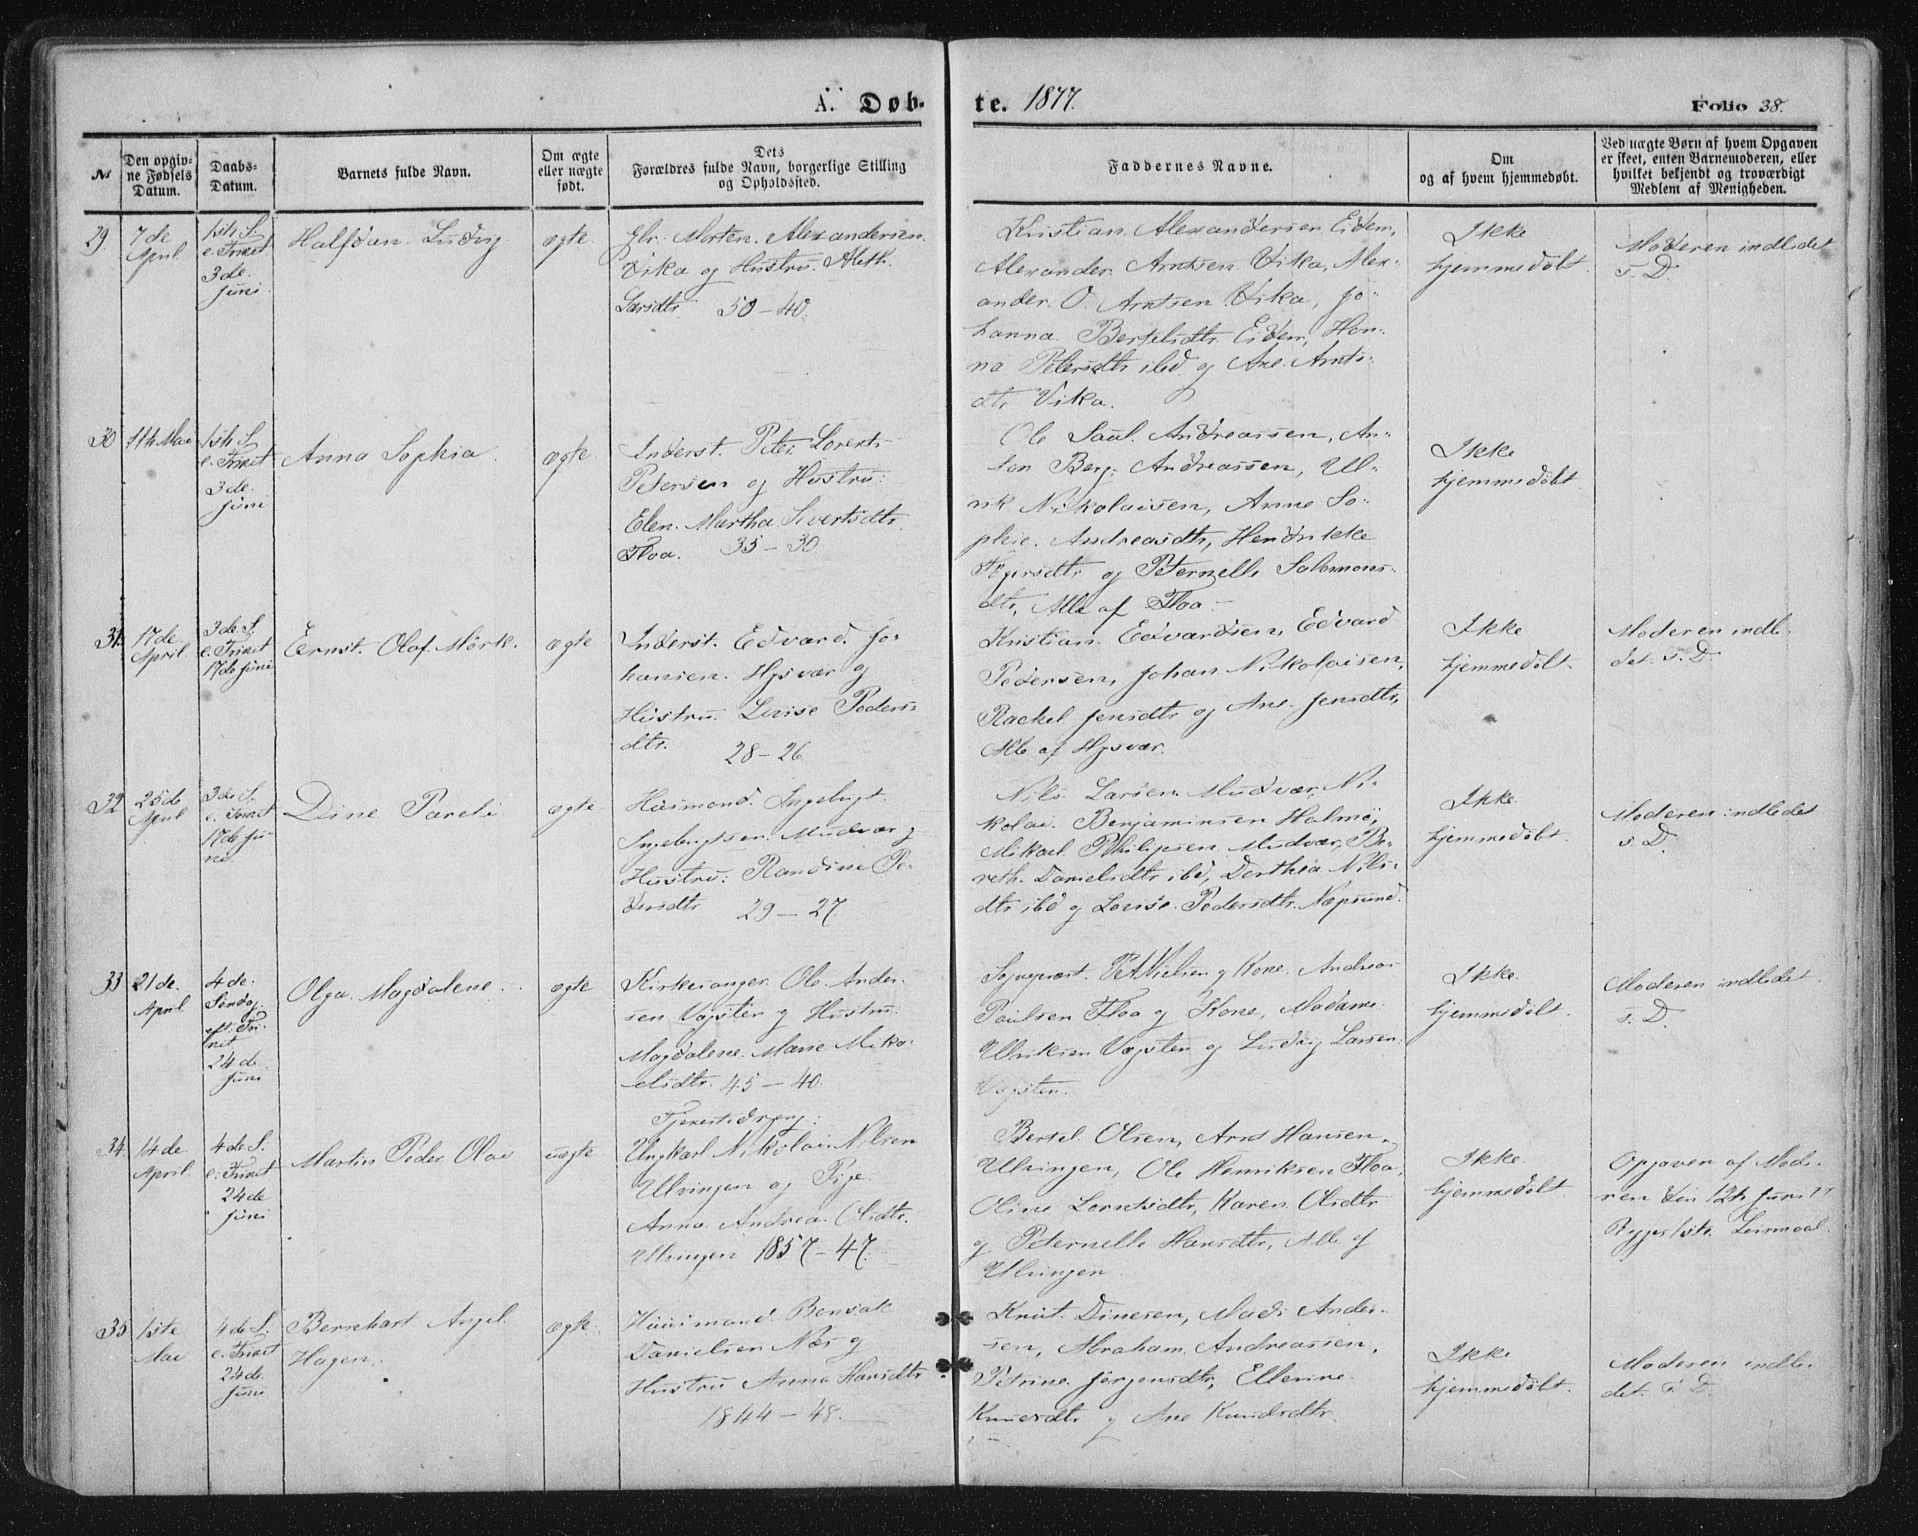 A. Døb-
te. 1877.
Folio 38.
No
Den opgiv-
ne Fødsels
Datum.
Daabs-
Datum.
Barnets fulde Navn.
Om ægte
eller uægte
født.
Dets
Forældres fulde Navn, borgerlige Stilling
og Opholdssted.
Faddernes Navne.
Om
og af hvem hjemmedøbt.
Ved uægte Børn af hvem Opgaven
er skeet, enten Barnemoderen, eller
hvilket bekjendt og troværdigt
Medlem af Menigheden.
29.
7de
April
1ste S.
e. Trinet
3de
Juni
Halfdan Ludvig
ægte
Morten Alexandersen
Vika og Hustru Aleth
Larsdtr. 50-40.
Kristian Alexandersen Eidem,
Alexander Arntsen Vika, Alex-
ander O. Arntsen Vika, Jo-
hanna Bertelsdtr. Eidem, Han-
na Petersdtr ibd og Ane Arnts-
dtr Vika.
Ikke
hjemmedøbt.
Moderen indledet
s. D.
30
11te Mai
1ste S.
e. Trinet
3de
Juni
Anna Sophia
ægte
Inderst. Peter Lorents
Petersen og Hustru
Elen Martha Sivertsdtr.
Floa. 35-30
Ole Saul Andreassen, An-
ton Berg Andreassen, Ul-
rik Nikolaisen, Anne So-
phie Andreasdtr, Hendrikke
og Peternelle Salomons-
dtr, Alle af Floa.
Ikke
hjemmedøbt
31.
17de
April
3de S.
e. Trinet
17de Juni
Ernst Olaf Mørk
ægte
Inderst. Edvard Jo-
hansen Hysvær og
Hustru Lovise Peders-
dtr. 28-26
Kristian Edvardsen, Edvard
Pedersen, Johan Nikolaisen,
Rackel Jensdtr og Ane Jensdtr,
Alle af Hysvær.
Ikke
hjemmedøbt.
Moderen indle-
det s. D.
32
25de
April
3de S.
e. Trinet
17de Ju-
ni
Dine Pareli
ægte
Huusmand Ingebrigt
Ingebrigtsen Mudvær og
Hustru: Randine Pe-
dersdtr 29-27
Nils Larsen Mudvær, Ni-
kolai Benjaminsen Halmø,
Mikael Philipsen Mudvær, Be-
reth Danielsdtr ibd, Dorthea Nils-
dtr ibd og Lovise Pedersdtr. Næpsund.
Ikke
hjemmedøbt
Moderen indledet
s. D.
33
21de
April
4de
Søndag
eft. Tri-
nit
24de
Juni
Olga Magdalene
ægte
Kirkesanger Ole Ander-
sen Vægsten og Hustru
Magdalene Marie Mika-
elsdtr. 45-40.
Sogneprest P. A. Nielsen og Kone, Andreas
Paulsen Floa og Kone, Madame
Ulriksen Vægsten og Ludvig Larsen
Vægsten.
Ikke
hjemmedøbt.
Moderen indledet
s. D.
34.
14de
April
4de S.
e. Trinet
24de
Juni
Martin Peder Olai
uægte
Tjenestedreng:
Ungkarl Nikolai Nilsen
Ulvingen og Pige
Anna Andrea Olsdtr.
Ulvingen 1857-47.
Bertel Olsen, Arnt Hansen
Ulvingen, Ole Henriksen Floa,
Oline Lorntsdtr, Karen Olsdtr
og Peternelle Hansdtr, Alle af
Ulvingen
Ikke
hjemmedøbt
Opgaven af Mode-
ren den 12te Juni 77
1ste Leiermaal
35
1ste
Mai
4de S.
e. Trinet
24de
Juni
Bernhart Angel
Hagen
ægte.
Huusmand Bonsak
Danielsen Næs og
Hustru Anna Hansdtr
1844-48.
Knut Dinesen, Mads Ander-
sen, Abraham Andreassen,
Petrine Jørgensdtr, Ellerine
Knutsdtr og Ane Knudsdtr.
Ikke
hjemmedøbt.
Moderen indle-
det s. D.